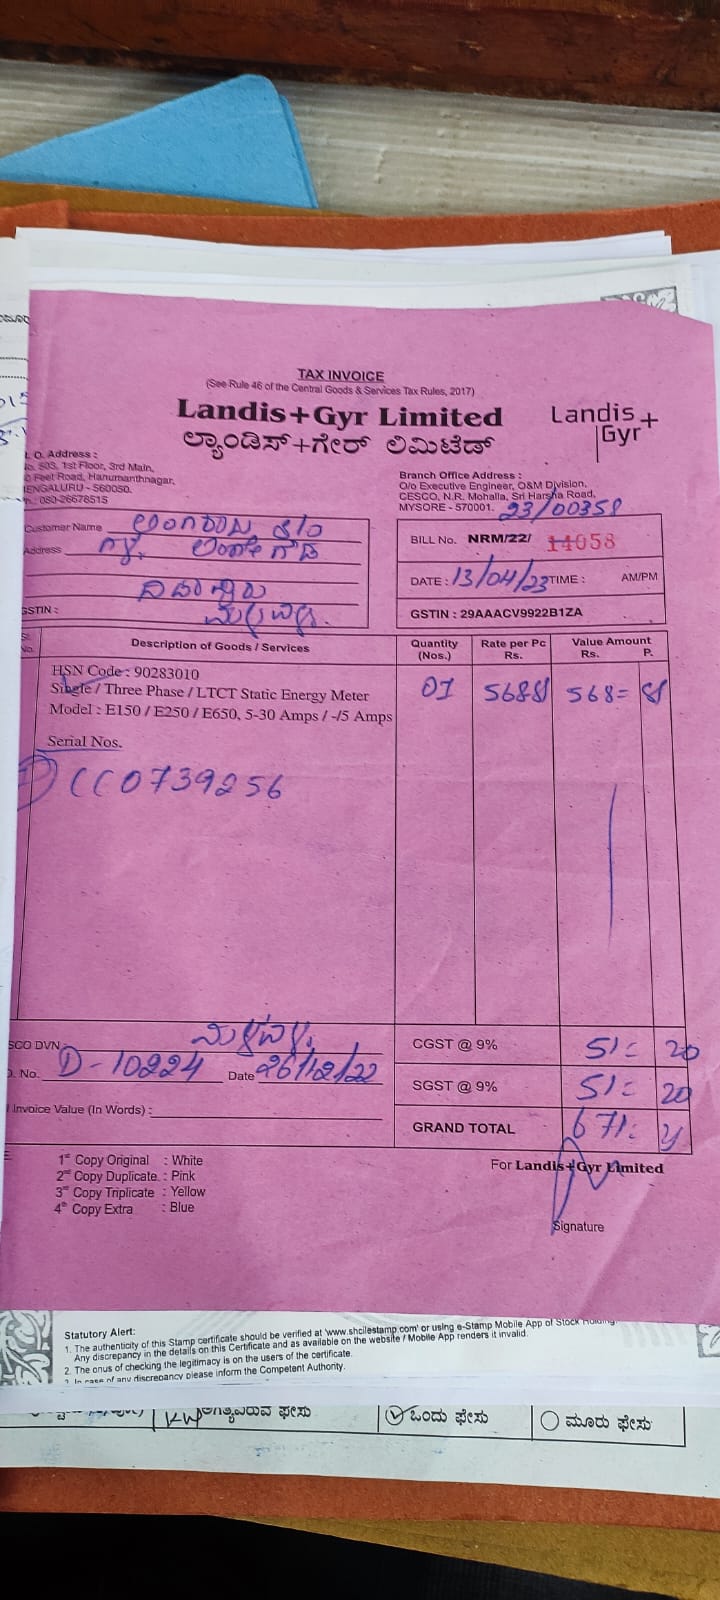 TAX INVOICE
(See Rule 46 of the Central Goods & Services Tax Rules, 2017)
Landis+Gyr Limited
ಲ್ಯಾಂಡಿಸ್+ಗೇರ್ ಲಿಮಿಟೆಡ್
Landis+
Gyr
. O. Address :
No. 503, 1st Floor, 3rd Main,
Feet Road, Hanumanthnagar,
BENGALURU - 560050.
: 080-26678515
Branch Office Address :
O/o Executive Engineer, O&M Division,
CESCO, N.R. Mohalla, Sri Harsha Road,
MYSORE - 570001.
23/00358
Customer Name
Address
GSTIN :
BILL No. NRM/22/ 14058
DATE : 13/04/23 TIME : AM/PM
GSTIN : 29AAACV9922B1ZA
Sl. No.
Description of Goods / Services
Quantity (Nos.)
Rate per Pc Rs.
Value Amount Rs. P.
HSN Code : 90283010
Single / Three Phase / LTCT Static Energy Meter
Model : E150 / E250 / E650, 5-30 Amps / -/5 Amps
01
568
568=
Serial Nos.
CC0739256
SCO DVN :
. No. D-10224 Date 26/12/22
Invoice Value (In Words) :
CGST @ 9% 51= 20
SGST @ 9% 51= 20
GRAND TOTAL 671=
1st Copy Original : White
2nd Copy Duplicate : Pink
3rd Copy Triplicate : Yellow
4th Copy Extra : Blue
For Landis+Gyr Limited
Signature
Statutory Alert:
1. The authenticity of this Stamp certificate should be verified at 'www.shcilestamp.com' or using e-Stamp Mobile App of Stock Holding.
Any discrepancy in the details on this Certificate and as available on the website / Mobile App renders it invalid.
2. The onus of checking the legitimacy is on the users of the certificate.
3. In case of any discrepancy please inform the Competent Authority.
ಫೇಸು
ಒಂದು ಫೇಸು
ಮೂರು ಫೇಸು